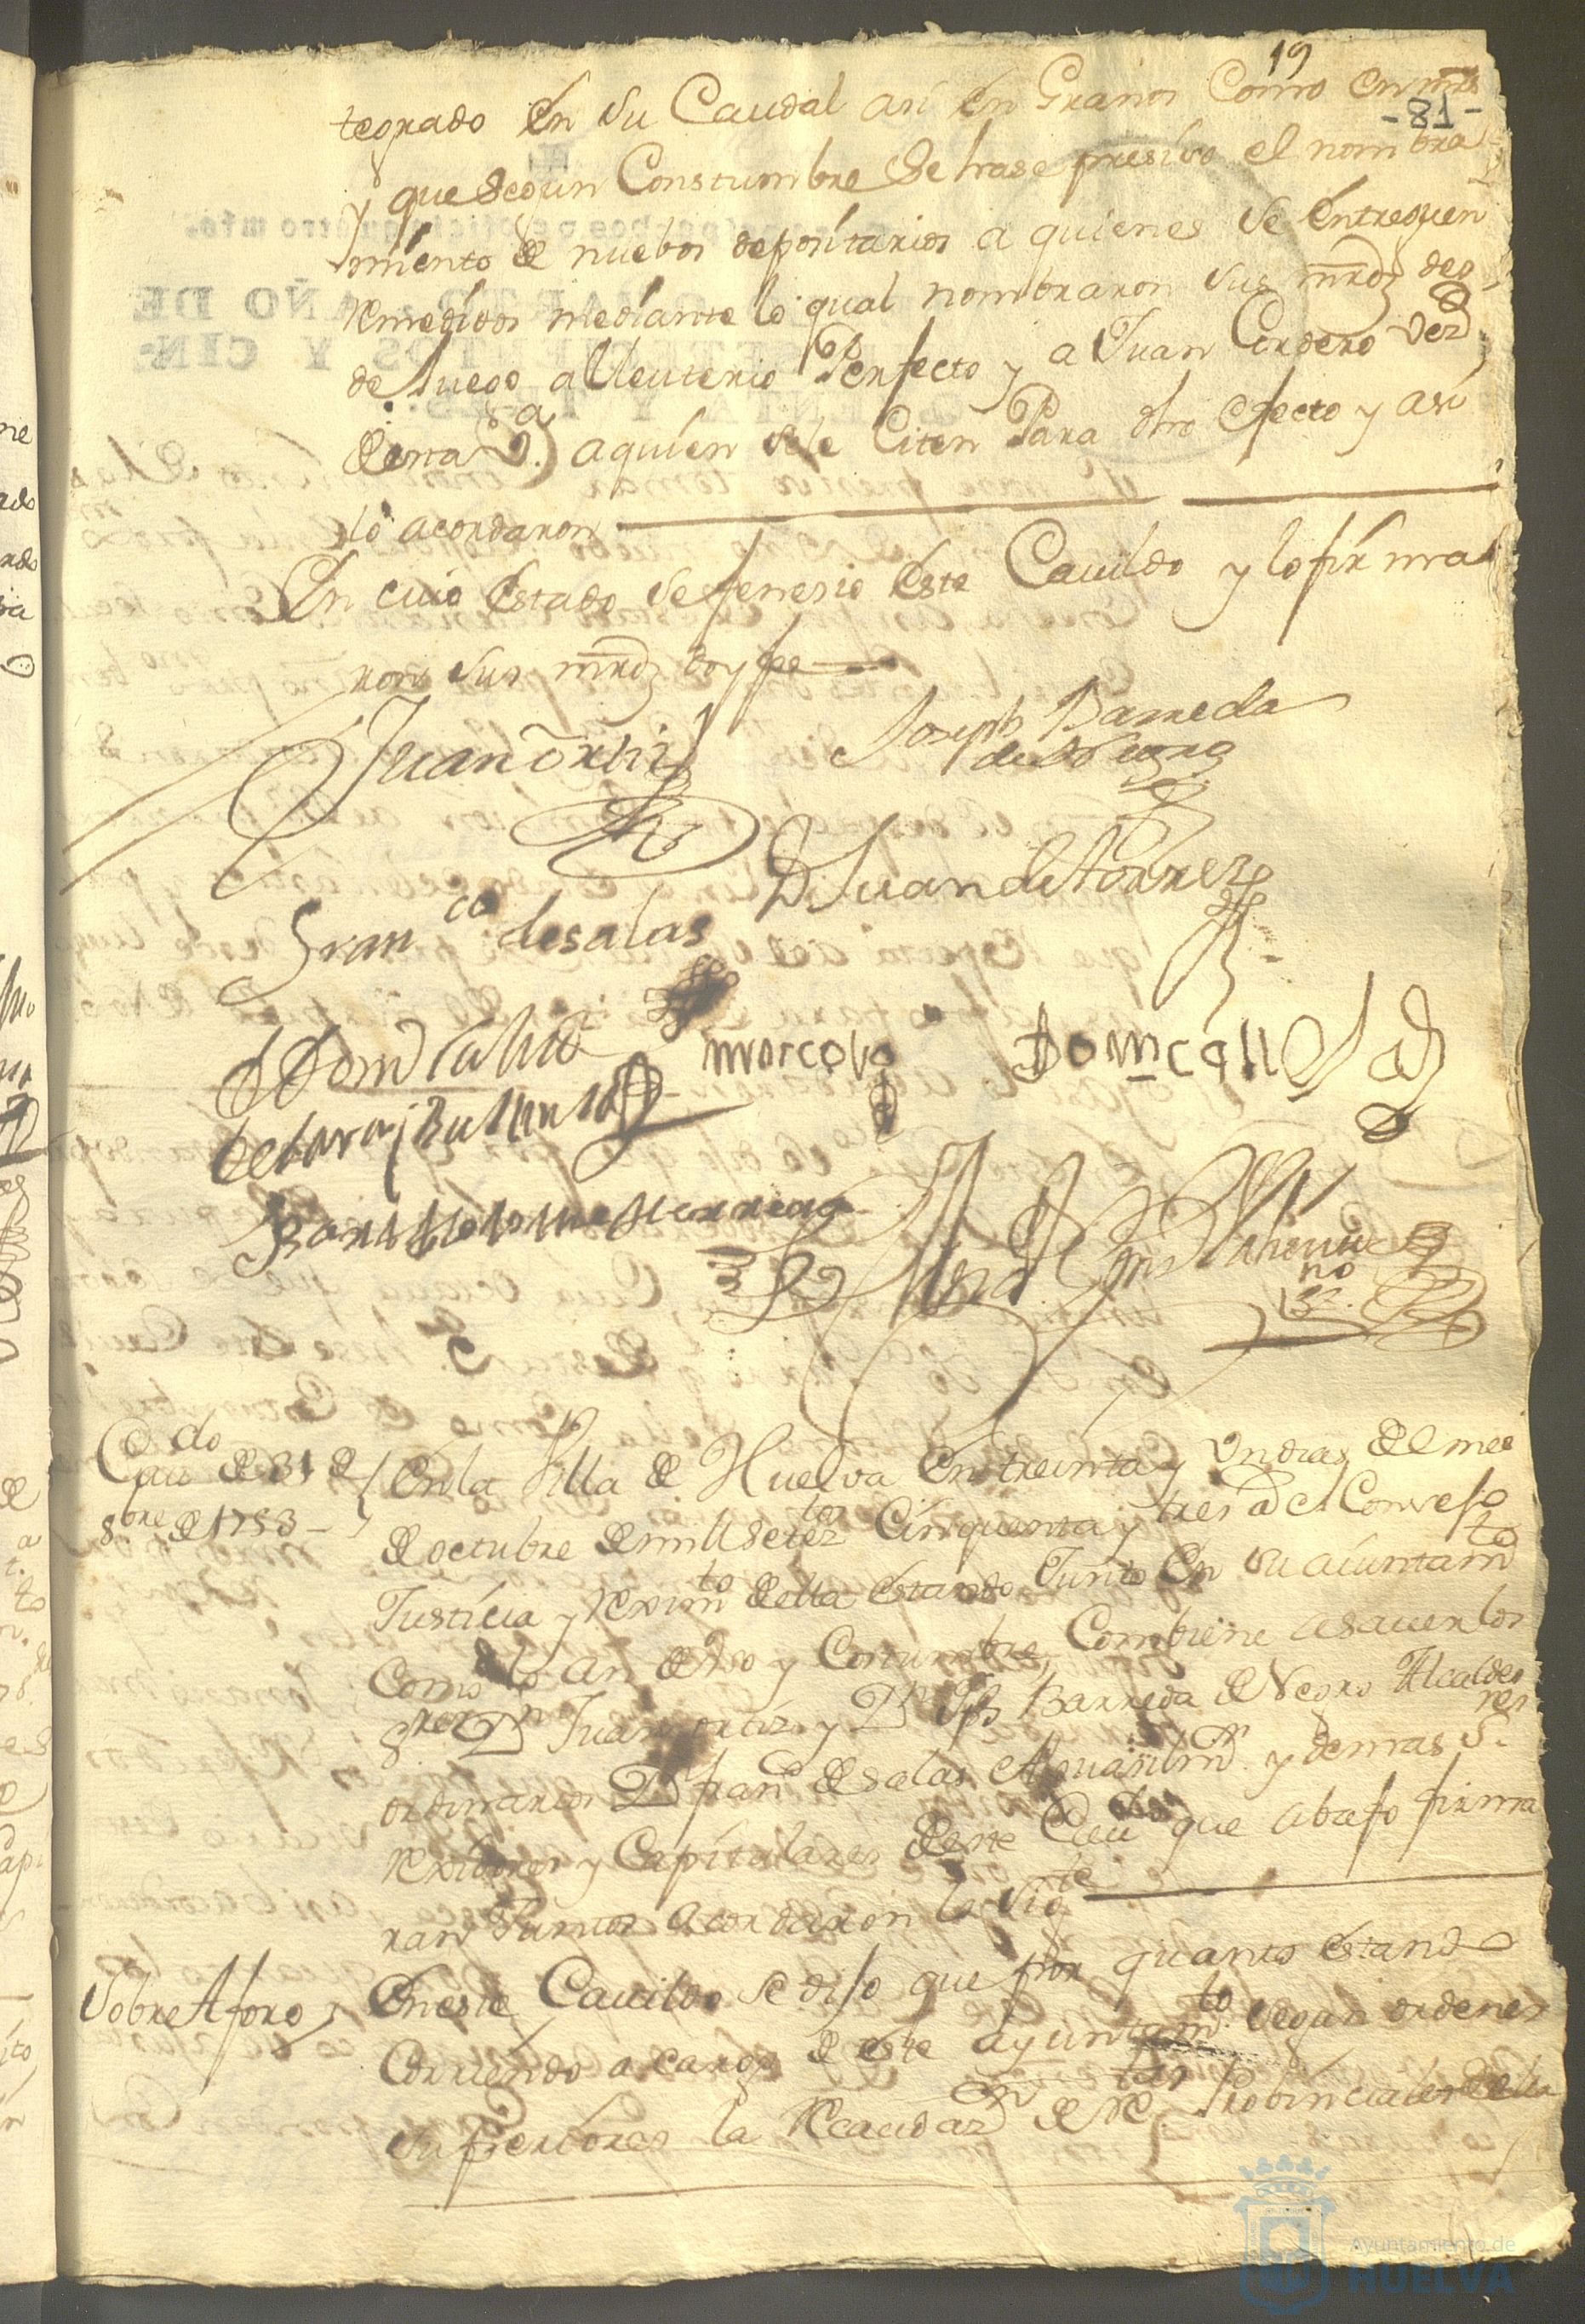 19
-81-
tegrado en su Caudal asi en Granos Como en mrs
y que segun Constumbre se hase presiso el nombra
miento de nuebos depositarios a quienes se entreguen
remedidos mediante lo qual nombraron sus mrds des
de luego a Uleuterio Perfecto y a Juan Cordero vez
desta va. a quien se le Citen Para dho efecto y asi
lo acordaron
En cuio estado se fenesio este Cauildo y lo firma
ron sus mrds doy fe
Juan Ortiz
Joseph Barreda
de Negro
D Juan de Torres
Franco de salas
marcos
Bartholome Herrera
Caudo de 31 de
8bre de 1753
En la Villa de Huelva en treinta y un dias del mes
de octubre de mill setezos Cinquenta y tres a el Consejo
Justicia y reximto della estando Junto en su aiuntamto
Como lo an de uso y Costumbre Combiene a sauer los
sres Dn Juan ortiz y Dn Jph Barreda de Negro Alcaldes
ordinarios Dn Fran de salas Alguasil mr y demas sres
rexidores y Capitulares deste Caudo que abajo firma
ran Juntos acordaron lo sigte
Sobre Aforo
En este Cauildo se dijo que por quanto estando
Corriendo a cargo de este ayuntamto segun ordenes
superiores la Recaudazn de Rtas Probinciales della
Ayuntamiento de
HUELVA